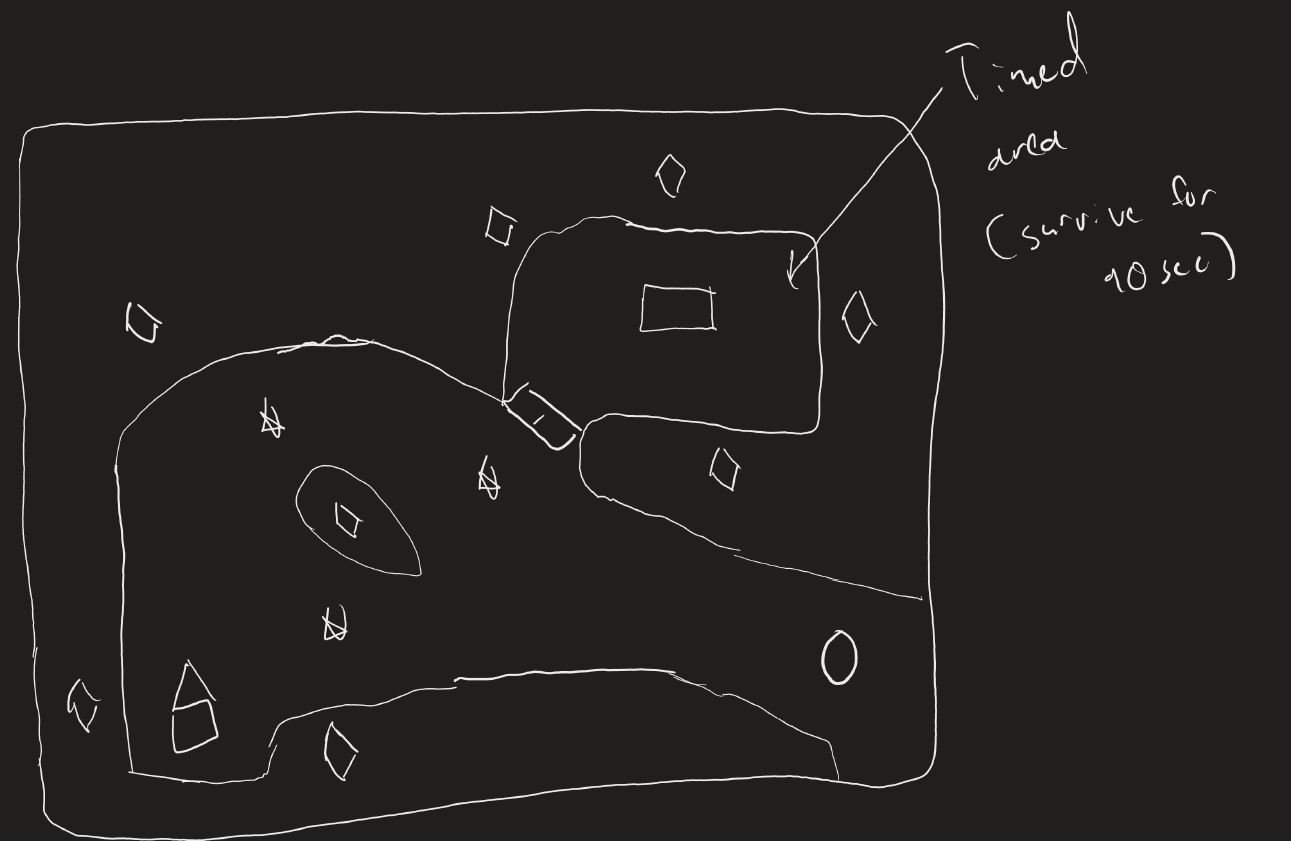 Timed
area
(survive for
90 sec)